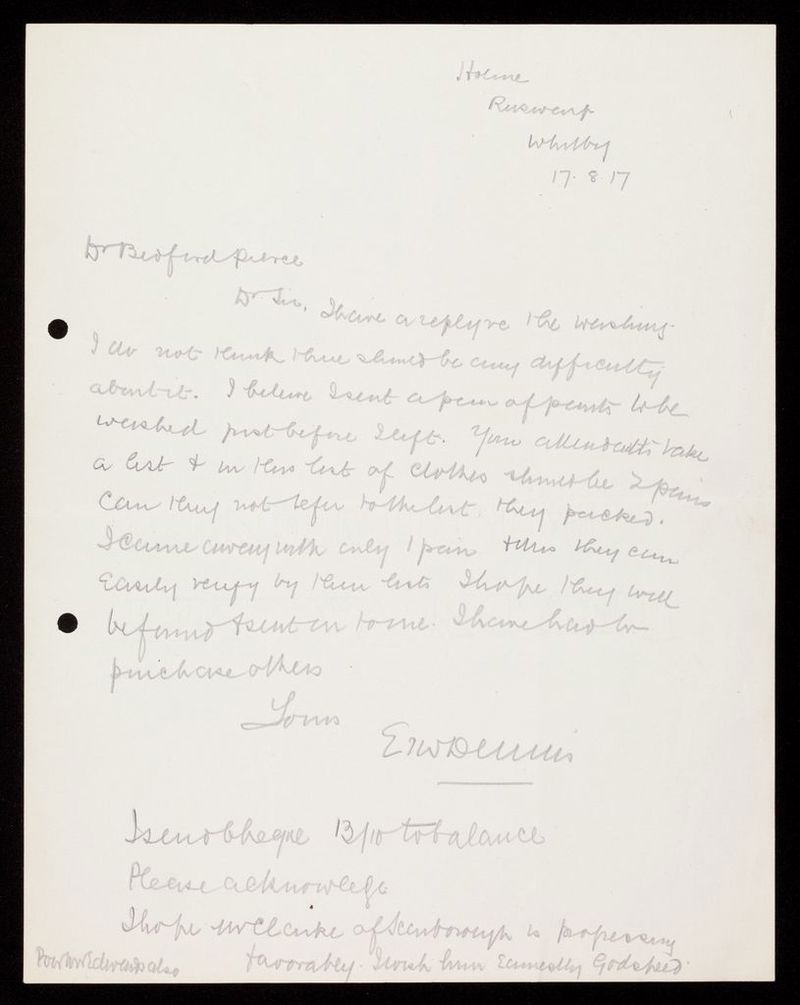 Holme
Ruswarp
Whitby
17. 8. 17
Dr Bedford Pierce
Dr Sir, I have a reply re the washing.
I do not think there should be any difficulty
about it. I believe I sent a pair of pants to be
washed just before I left. Your attendants take
a list & in this list of clothes should be 2 pairs
Can they not refer to the list they packed.
I came away with only 1 pair & this they can
easily verify by their lists I hope they will
be found & sent on to me. I have had to
purchase others
Yours
Dennis
I send cheque 13/10 to balance
Please acknowledge
I hope Mr Clarke of Scarborough is progressing
favorably. I wish him earnestly Godspeed.
Poor Mr Edwards also